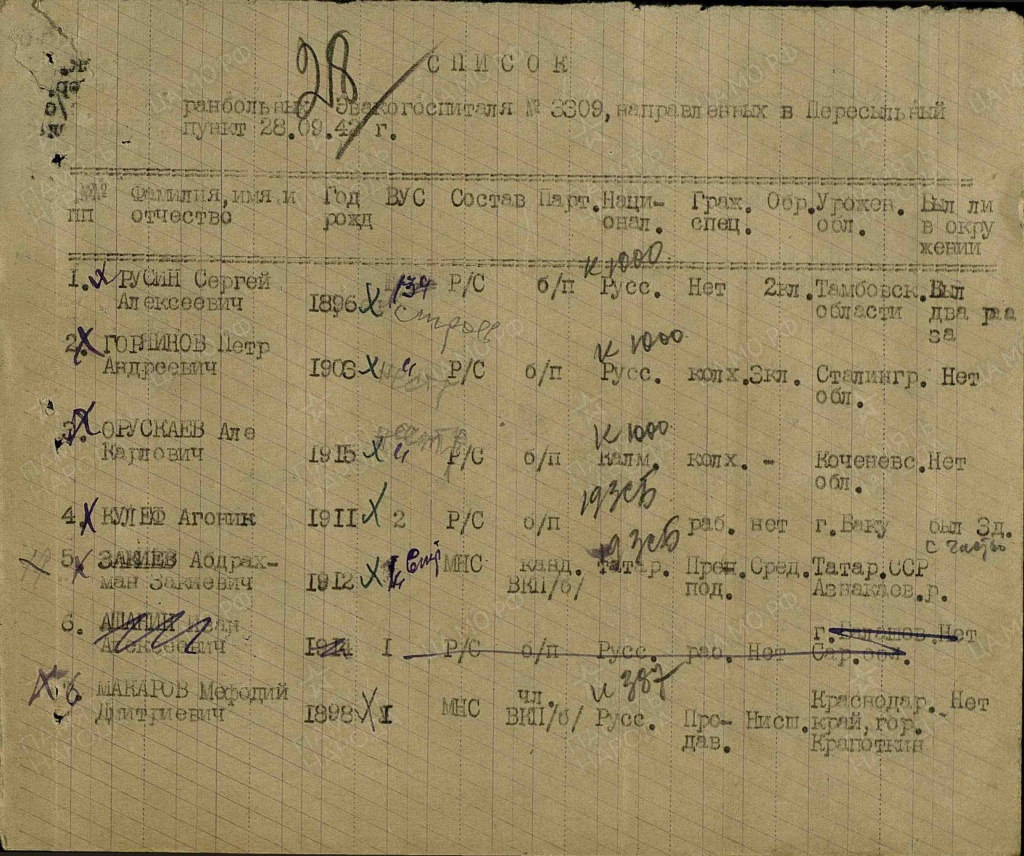 28
СПИСОК
ранбольных Эвакогоспиталя № 3309, направленных в Пересыльный
пункт 28.09.42 г.
№№ Фамилия, имя и Год ВУС Состав Парт. Наци- Граж. Обр. Урожен. Был ли
пп отчество рожд онал. спец. обл. в окру
жении
к 1000
1. РУСИН Сергей 134 Р/С б/п Русс. Нет 2кл. Тамбовск. Был
Алексеевич 1896 строев области два раа
за
к 1000
2. Петр
Андреевич 1903 " Р/С б/п Русс. колх. 3кл. Сталингр. Нет
обл.
к 1000
3. ОРУСКАЕВ Але
Карлович 1915 " Р/С б/п Калм. колх. - Коченевс. Нет
обл.
193сб
4. КУЛЕФ Агоник 1911 2 Р/С б/п раб. нет г. Баку был 3д.
с частью
193сб
5. ЗАКИЕВ Абдрах- МНС канд. Татар. Преп. Сред. Татар.ССР
ман Закиевич 1912 ВКП/б/ под. Азнакаев.р.
6. АШАНИН Иван г. Нет
Алексеевич 1914 I Р/С б/п Русс. раб. Нет Сар.обл.
к 387
МАКАРОВ Мефодий МНС чл. Краснодар. Нет
Дмитриевич 1898 I ВКП/б/ Русс. Про- Нисш. край, гор.
дав. Крапоткин